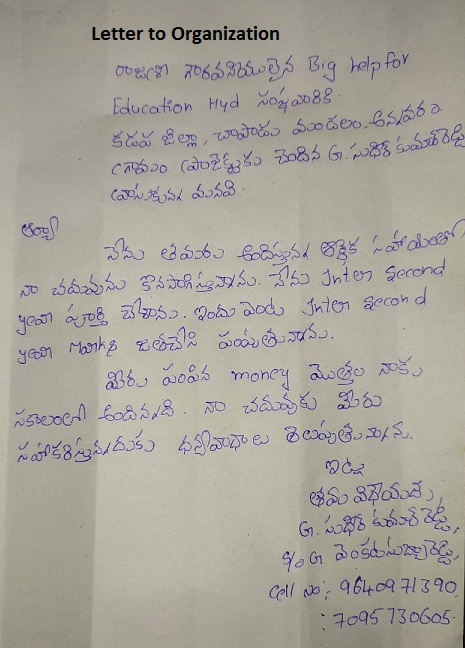 Letter to Organization
రాజశ్రీ గౌరవనీయులైన Big help for
Education Hyd సంస్థవారికి
కడప జిల్లా, చాపాడు మండలం, అన్నవరం
గ్రామం ప్రాజెక్టుకు చెందిన G. సుధీర్ కుమార్ రెడ్డి
వ్రాసుకున్న మనవి.
ఆర్యా
నేను తమరు అందిస్తున్న ఆర్థిక సహాయంతో
నా చదువును కొనసాగిస్తున్నాను. నేను Inter second
year పూర్తి చేశాను. ఇందు వెంట Inter second
year Marks జతచేసి పంపుతున్నాను.
మీరు పంపిన money మొత్తం నాకు
సకాలంలో అందినది. నా చదువుకు మీరు
సహాకరిస్తున్నందుకు ధన్యవాధాలు తెలుపుతున్నాను.
ఇట్లు
తమ విధేయుడు,
G. సుధీర్ కుమార్ రెడ్డి,
S/o G వెంకటసుబ్బారెడ్డి,
Cell no: 9640971390
: 7095730605.